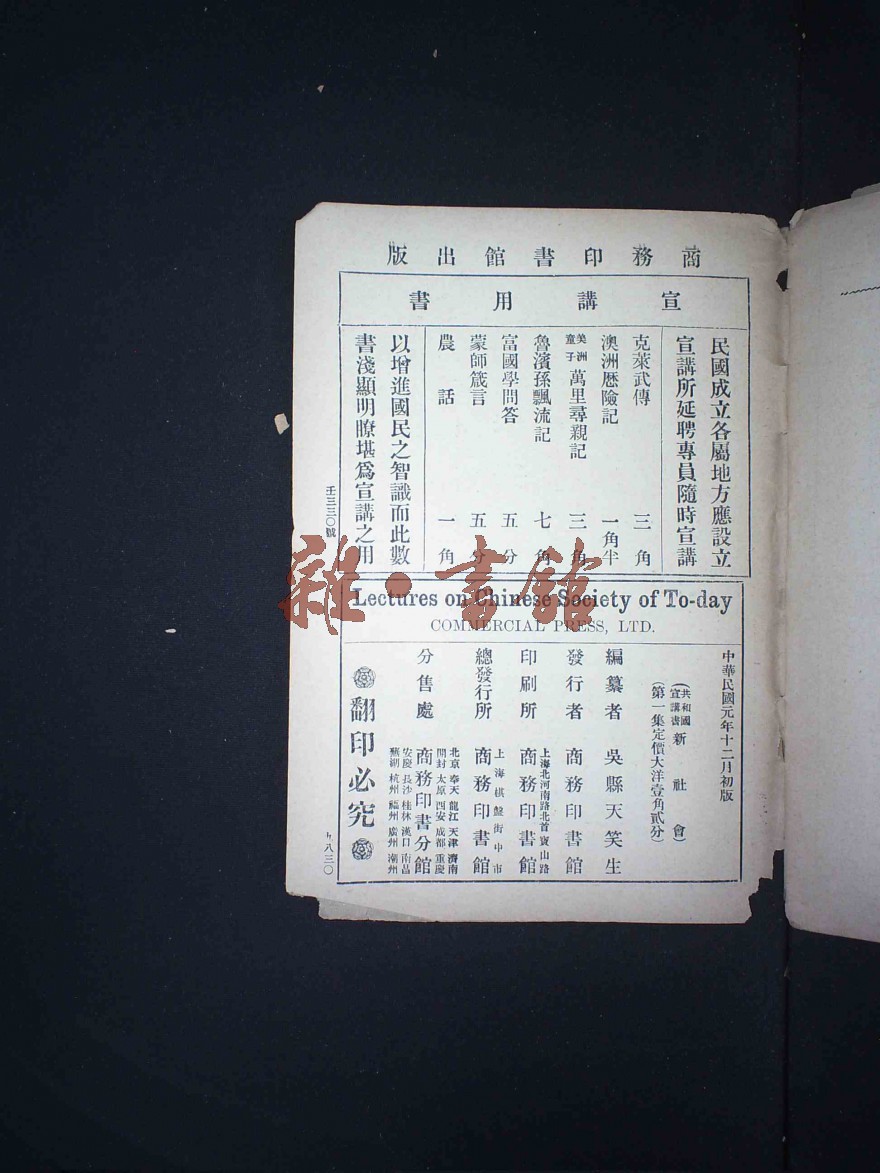 商務印書館出版
宣講用書
民國成立各屬地方應設立
宣講所延聘專員隨時宣講
克萊武傳 三角
澳洲歷險記 一角半
美洲童子萬里尋親記 三角
魯濱孫飄流記 七角
富國學問答 五分
蒙師箴言 五分
農話 一角
以增進國民之智識而此數
書淺顯明瞭堪爲宣講之用
壬三三〇號
Lectures on Chinese Society of To-day
COMMERCIAL PRESS, LTD.
中華民國元年十二月初版
(共和國宣講書新社會)
(第一集定價大洋壹角貳分)
編纂者 吳縣天笑生
發行者 商務印書館
印刷所 上海北河南路北首寶山路 商務印書館
總發行所 上海棋盤街中市 商務印書館
分售處 北京奉天龍江天津濟南
開封太原西安成都重慶
商務印書分館
安慶長沙桂林漢口南昌
蕪湖杭州福州廣州潮州
翻印必究
八三〇
雜·書館